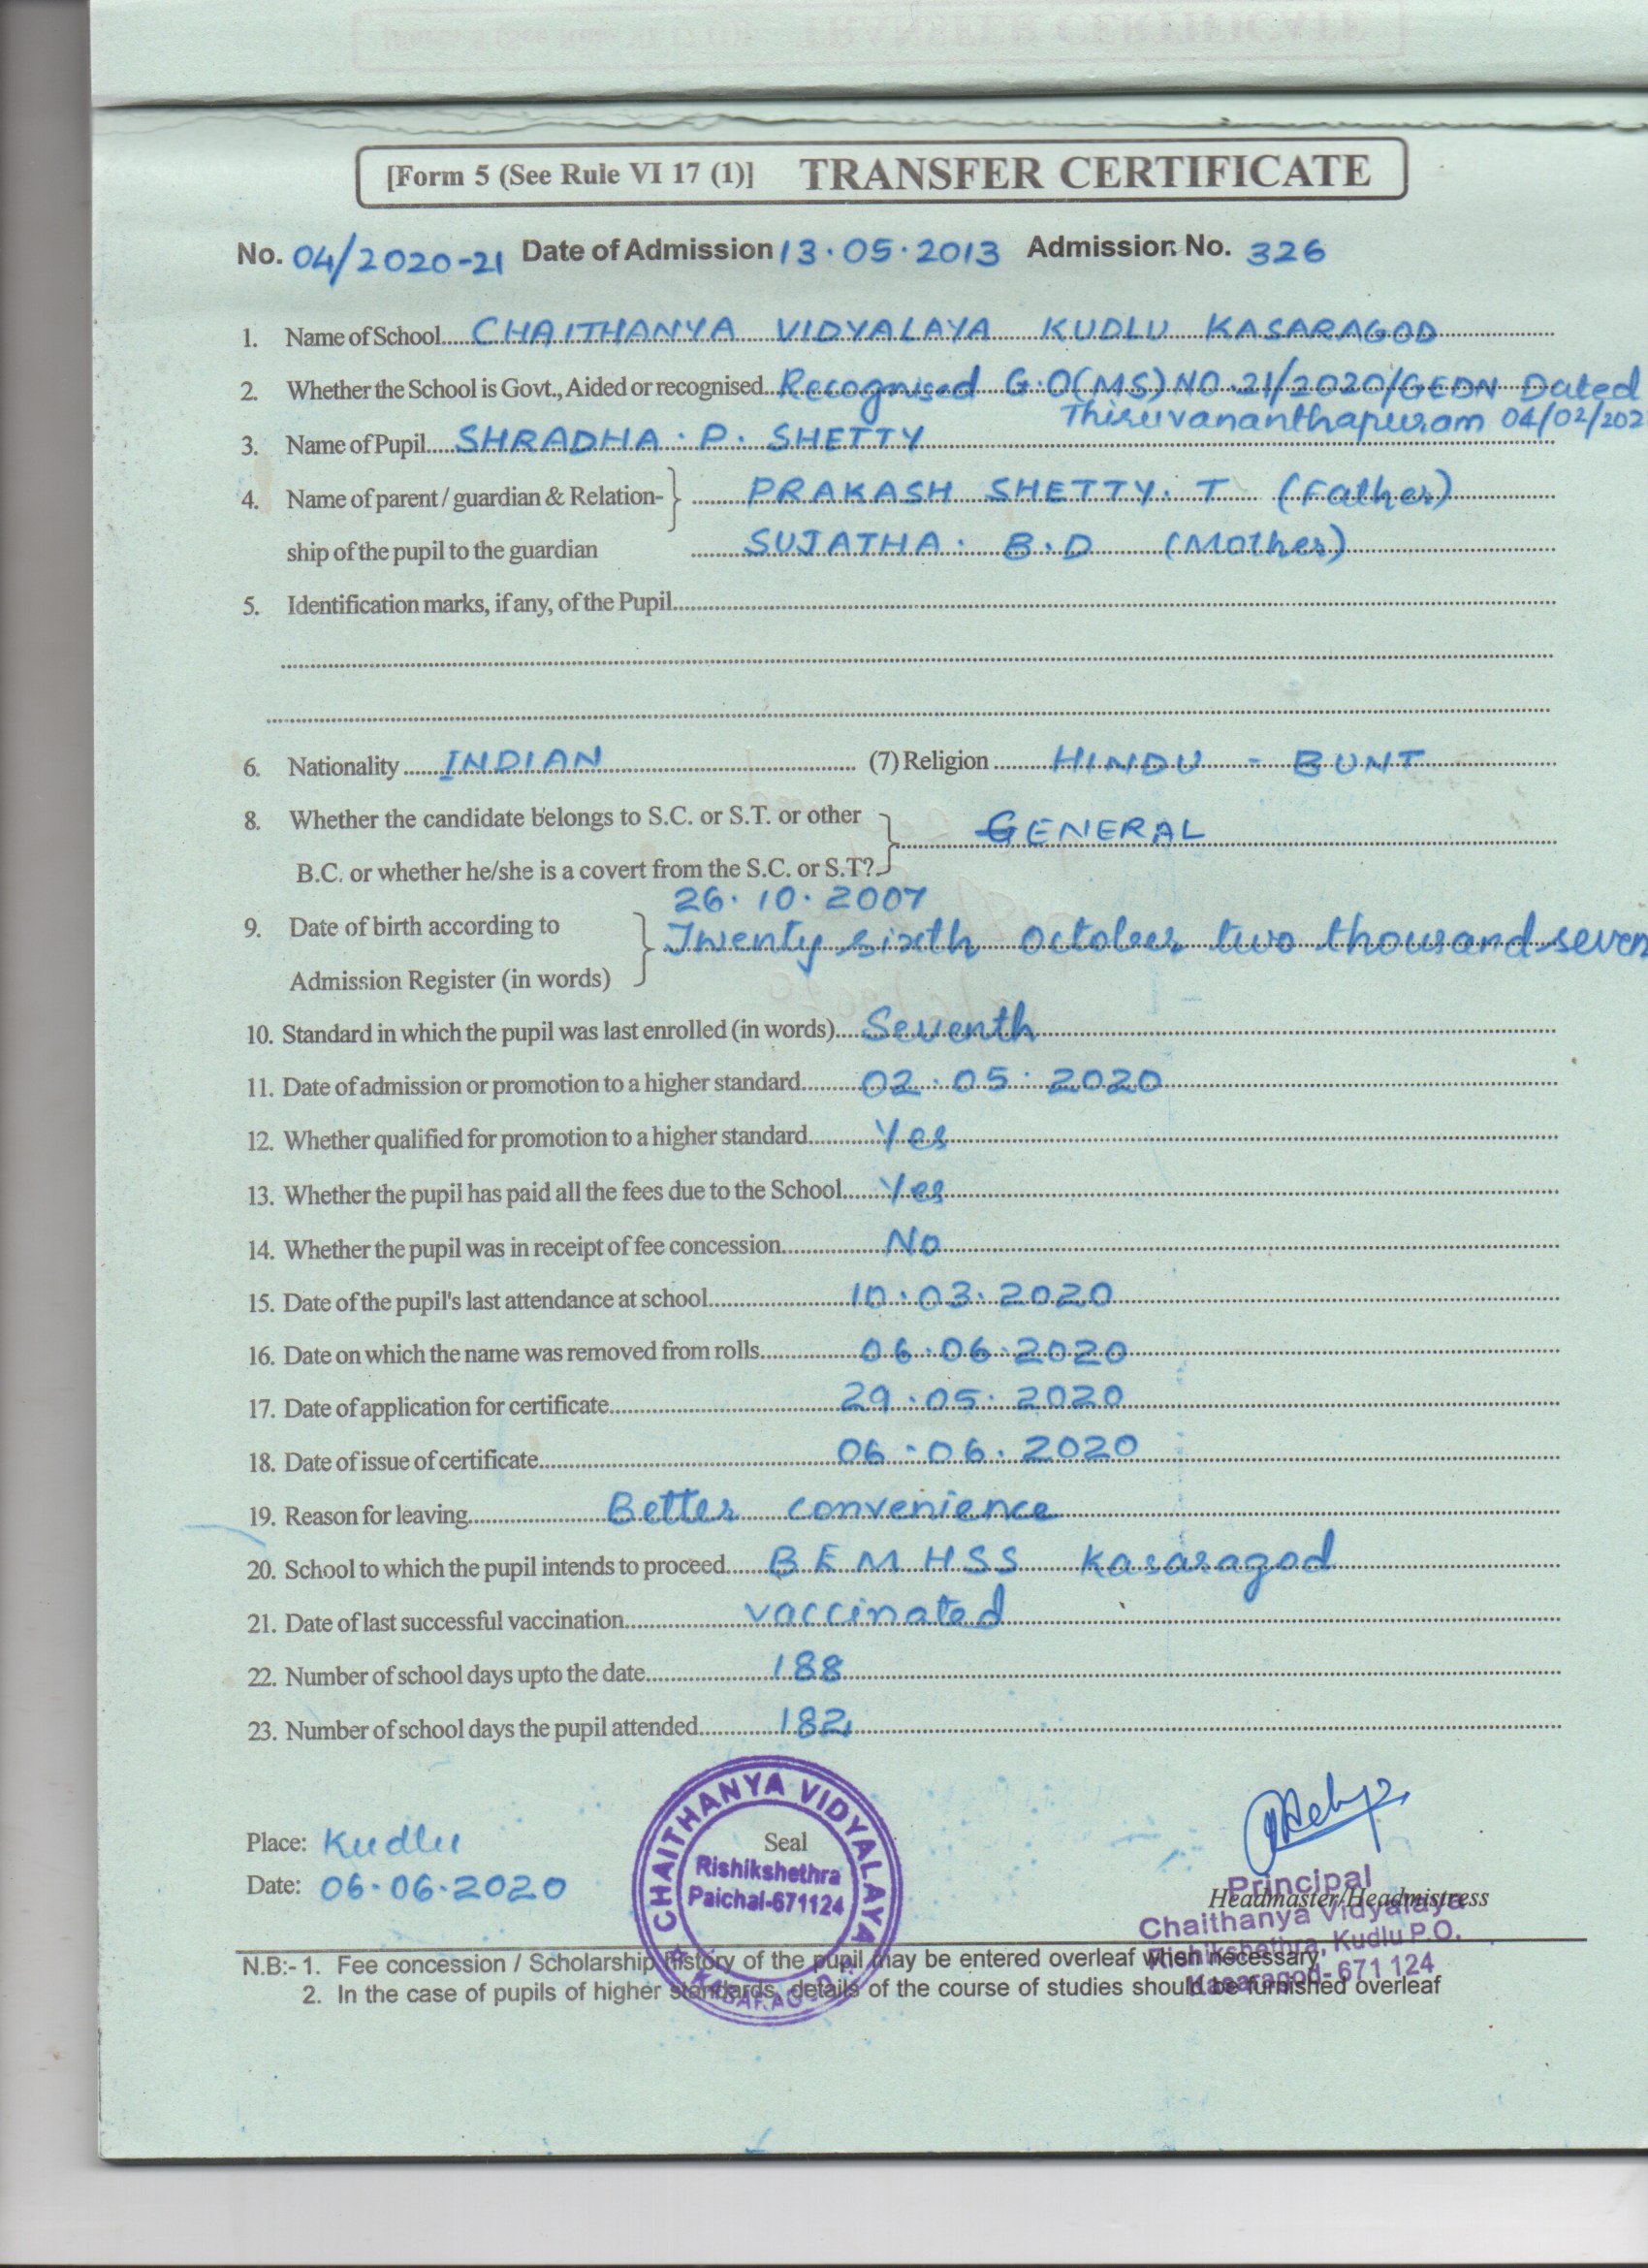 [Form 5 (See Rule VI 17 (1)] TRANSFER CERTIFICATE
No. 04/2020-21 Date of Admission 13.05.2013 Admission No. 326
1. Name of School CHAITHANYA VIDYALAYA KUDLU KASARAGOD
2. Whether the School is Govt., Aided or recognised Recognised G.O(MS)NO.21/2020/GEDN Dated
Thiruvananthapuram 04/02/202
3. Name of Pupil SHRADHA. P. SHETTY
4. Name of parent / guardian & Relation- PRAKASH SHETTY. T (Father)
ship of the pupil to the guardian SUJATHA. B.D (Mother)
5. Identification marks, if any, of the Pupil
6. Nationality INDIAN (7) Religion HINDU - BUNT
8. Whether the candidate belongs to S.C. or S.T. or other GENERAL
B.C. or whether he/she is a covert from the S.C. or S.T?
26.10.2007
9. Date of birth according to Twenty sixth October two thousand seven
Admission Register (in words)
10. Standard in which the pupil was last enrolled (in words) Seventh
11. Date of admission or promotion to a higher standard 02.05.2020
12. Whether qualified for promotion to a higher standard Yes
13. Whether the pupil has paid all the fees due to the School Yes
14. Whether the pupil was in receipt of fee concession No
15. Date of the pupil's last attendance at school 10.03.2020
16. Date on which the name was removed from rolls 06.06.2020
17. Date of application for certificate 29.05.2020
18. Date of issue of certificate 06.06.2020
19. Reason for leaving Better convenience
20. School to which the pupil intends to proceed BEMHSS Kasaragod
21. Date of last successful vaccination vaccinated
22. Number of school days upto the date 188
23. Number of school days the pupil attended 182
CHAITHANYA VIDYALAYA
Place: Kudlu Seal
Rishikshethra
Date: 06.06.2020 Paichal-671124
KASARAGOD
Principal
Headmaster/Headmistress
Chaithanya Vidyalaya
Rishikshethra, Kudlu P.O.
Kasaragod- 671 124
N.B:- 1. Fee concession / Scholarship history of the pupil may be entered overleaf when necessary
2. In the case of pupils of higher standards, details of the course of studies should be furnished overleaf